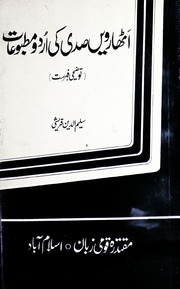 اٹھارویں صدی کی اردو مطبوعات
(توضیحی فہرست)
سلیم الدین قریشی
مقتدرہ قومی زبان ○ اسلام آباد